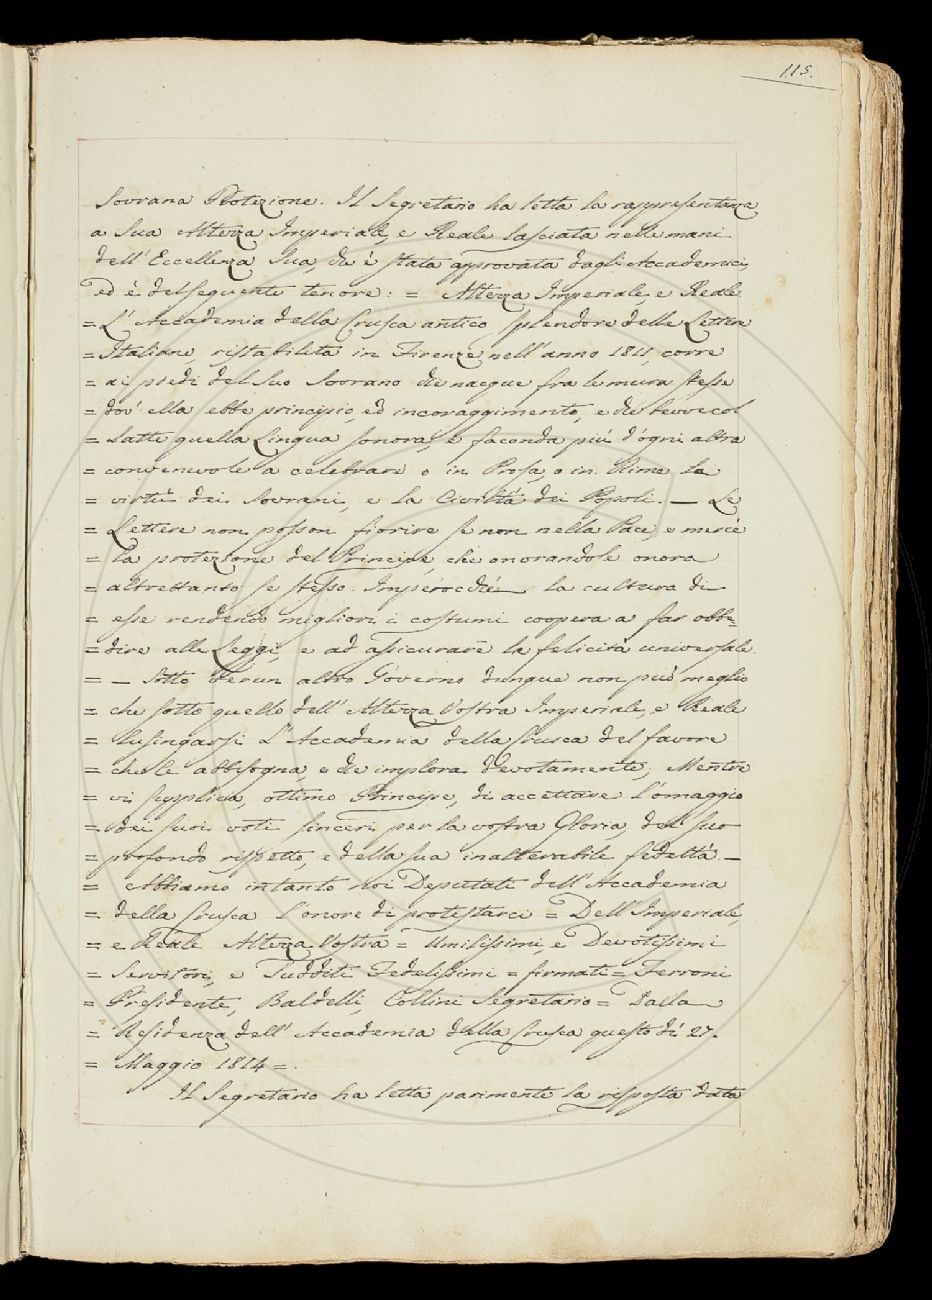 115.
Sovrana Protezione. Il Segretario ha letta la rappresentanza
a Sua Altezza Imperiale, e Reale lasciata nelle mani
dell'Eccellenza Sua, che è stata approvata dagli Accademici,
ed è del seguente tenore: = Altezza Imperiale, e Reale
= L'Accademia della Crusca antico splendore delle Lettere
= Italiane, ristabilita in Firenze nell'anno 1811, corre
= ai piedi del Suo Sovrano che nacque fra le mura stesse
= dov'ella ebbe principio, ed incoraggimento, e che bevve col
= Latte quella Lingua sonora, e faconda più d'ogni altra
= convenevole a celebrare o in Prosa, o in Rime le
= virtù dei Sovrani, e la Civiltà dei Popoli. — Le
= Lettere non posson fiorire se non nella Pace, e mercè
= la protezione del Principe, che onorandole onora
= altrettanto se stesso. Imperocchè la cultura di
= esse rendendo migliori i costumi coopera a far obbe=
= dire alle Leggi, e ad assicurare la felicità universale.
= — Sotto verun altro Governo dunque non può meglio
= che sotto quello dell'Altezza Vostra Imperiale, e Reale
= lusingarsi L'Accademia della Crusca del favore
= che le abbisogna, e che implora devotamente; Mentre
= vi supplica, ottimo Principe, di accettare l'omaggio
= dei suoi voti sinceri per la vostra Gloria, del suo
= profondo rispetto, e della sua inalterabile fedeltà. —
= Abbiamo intanto noi Deputati dell'Accademia
= della Crusca l'onore di protestarci = Dell'Imperiale,
= e Reale Altezza Vostra = Umilissimi, e Devotissimi
= Servitori, e Sudditi Fedelissimi = firmati = Ferroni
= Presidente, Baldelli, Collini Segretario = Dalla
= Residenza dell'Accademia della Crusca questo dì 27.
= Maggio 1814 =.
Il Segretario ha letta parimente la risposta data